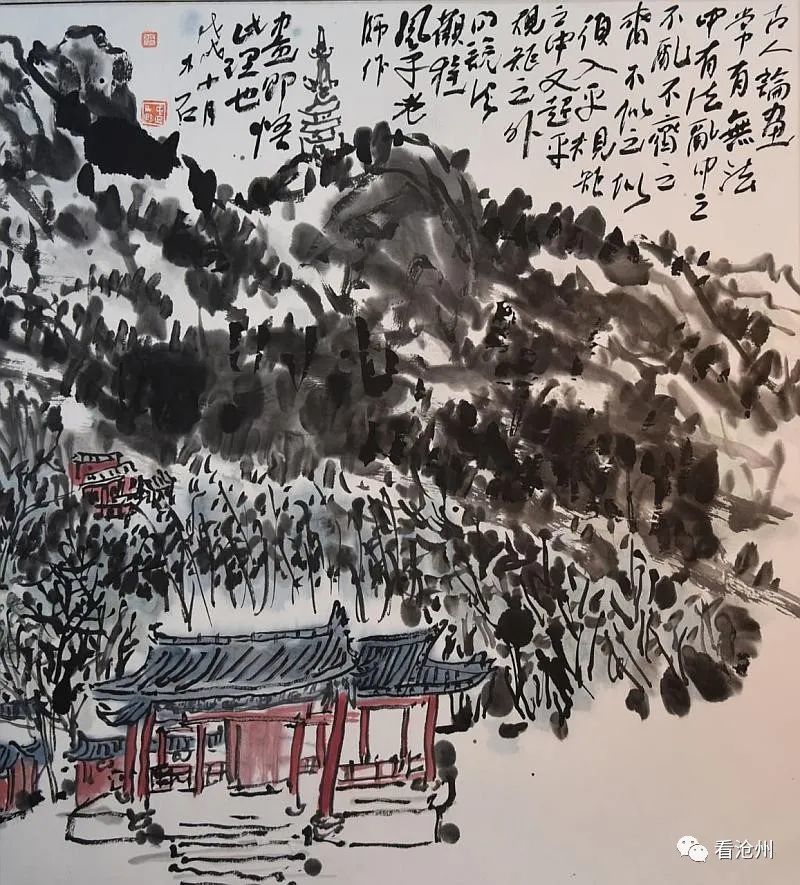 古人論画
常有無法
中有法亂中之
不亂不齊之
齊不似之似
須入乎規矩
之中又超乎
規矩之外
的說法
觀程
風子老
師作
畫即悟
此理也
戊戌十月
木石
看沧州